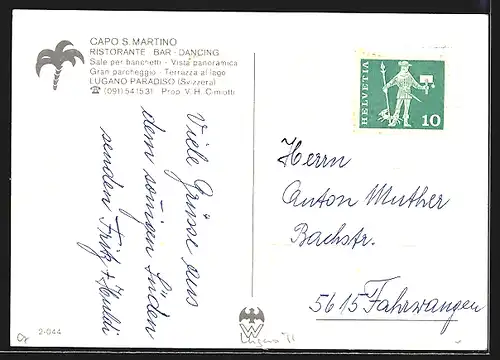 CAPO S. MARTINO
RISTORANTE BAR - DANCING
Sale per banchetti - Vista panoramica
Gran parcheggio - Terrazza al lago
LUGANO PARADISO (Svizzera)
☎ (091) 541531 Prop. V. H. Cimiotti
Viele Grüsse aus
dem sonigen Süden
senden Fritz + Huldi
HELVETIA
10
Herrn
Anton Muther
Bachstr.
5615 Fahrwangen
2-044
W